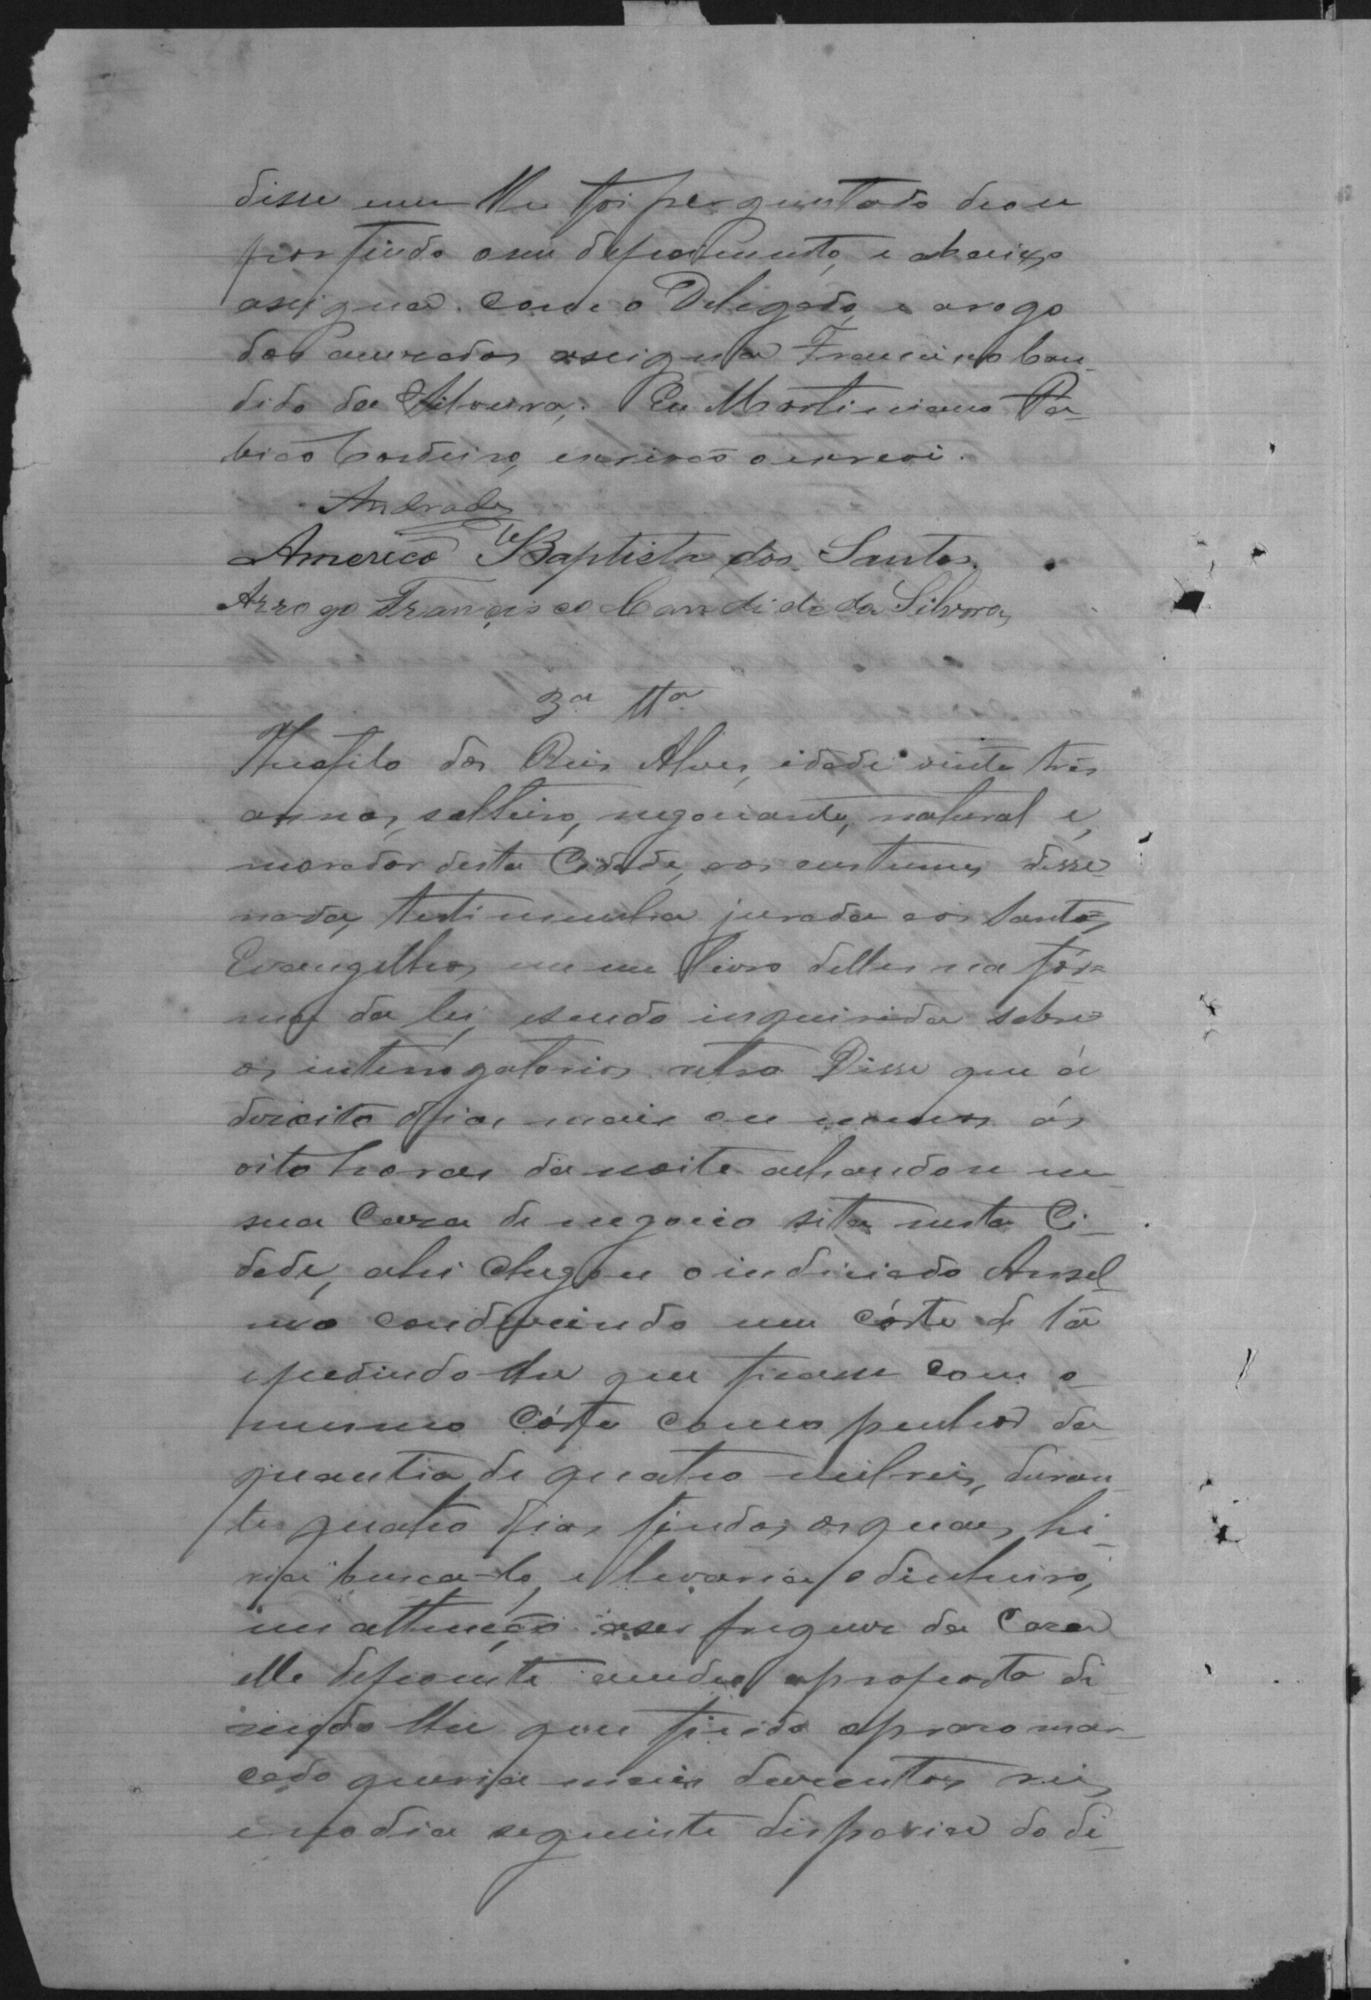 disse nem lhe foi perguntado deo se
por findo o seu depoimento, e abaixo
assigna com o Delegado, e arogo
dos accusados assigna Francisco Can-
dido da Silveira. Eu Martiniano
Cordeiro, escrivão o escrevi.
Andrade
Americo Baptista dos Santos.
Arrogo Francisco Candido da Silvra,
3ª ttª
Theofilo dos Reis Alves, idade vinte tres
annos, solteiro, negociante, natural e,
morador desta Cidade, aos custumes disse
nada, testimunha jurada aos Santos
Evangelhos em um livro delles na fór-
ma da lei, esendo inquirida sobre
os interrogatorios retro Disse que á
dezoito dias mais ou menos ás
oito horas da noite achando se em
sua Caza de negocio sita nesta Ci-
dade, ahi chegou o indiciado Ansel-
mo conduzindo um córte de lã
epedindo lhe que ficasse com o
mesmo córte como penhor da
quantia de quatro mil reis, duran-
te quatro dias findos os quaes hi-
ria busca-lo, e levaria o dinheiro,
em attenção aser freguez da Caza
elle depoente acudeo aproposta di-
zendo lhe que findo oprazo mar-
cado queria mais duzentos reis
e no dia seguinte disporia do di-